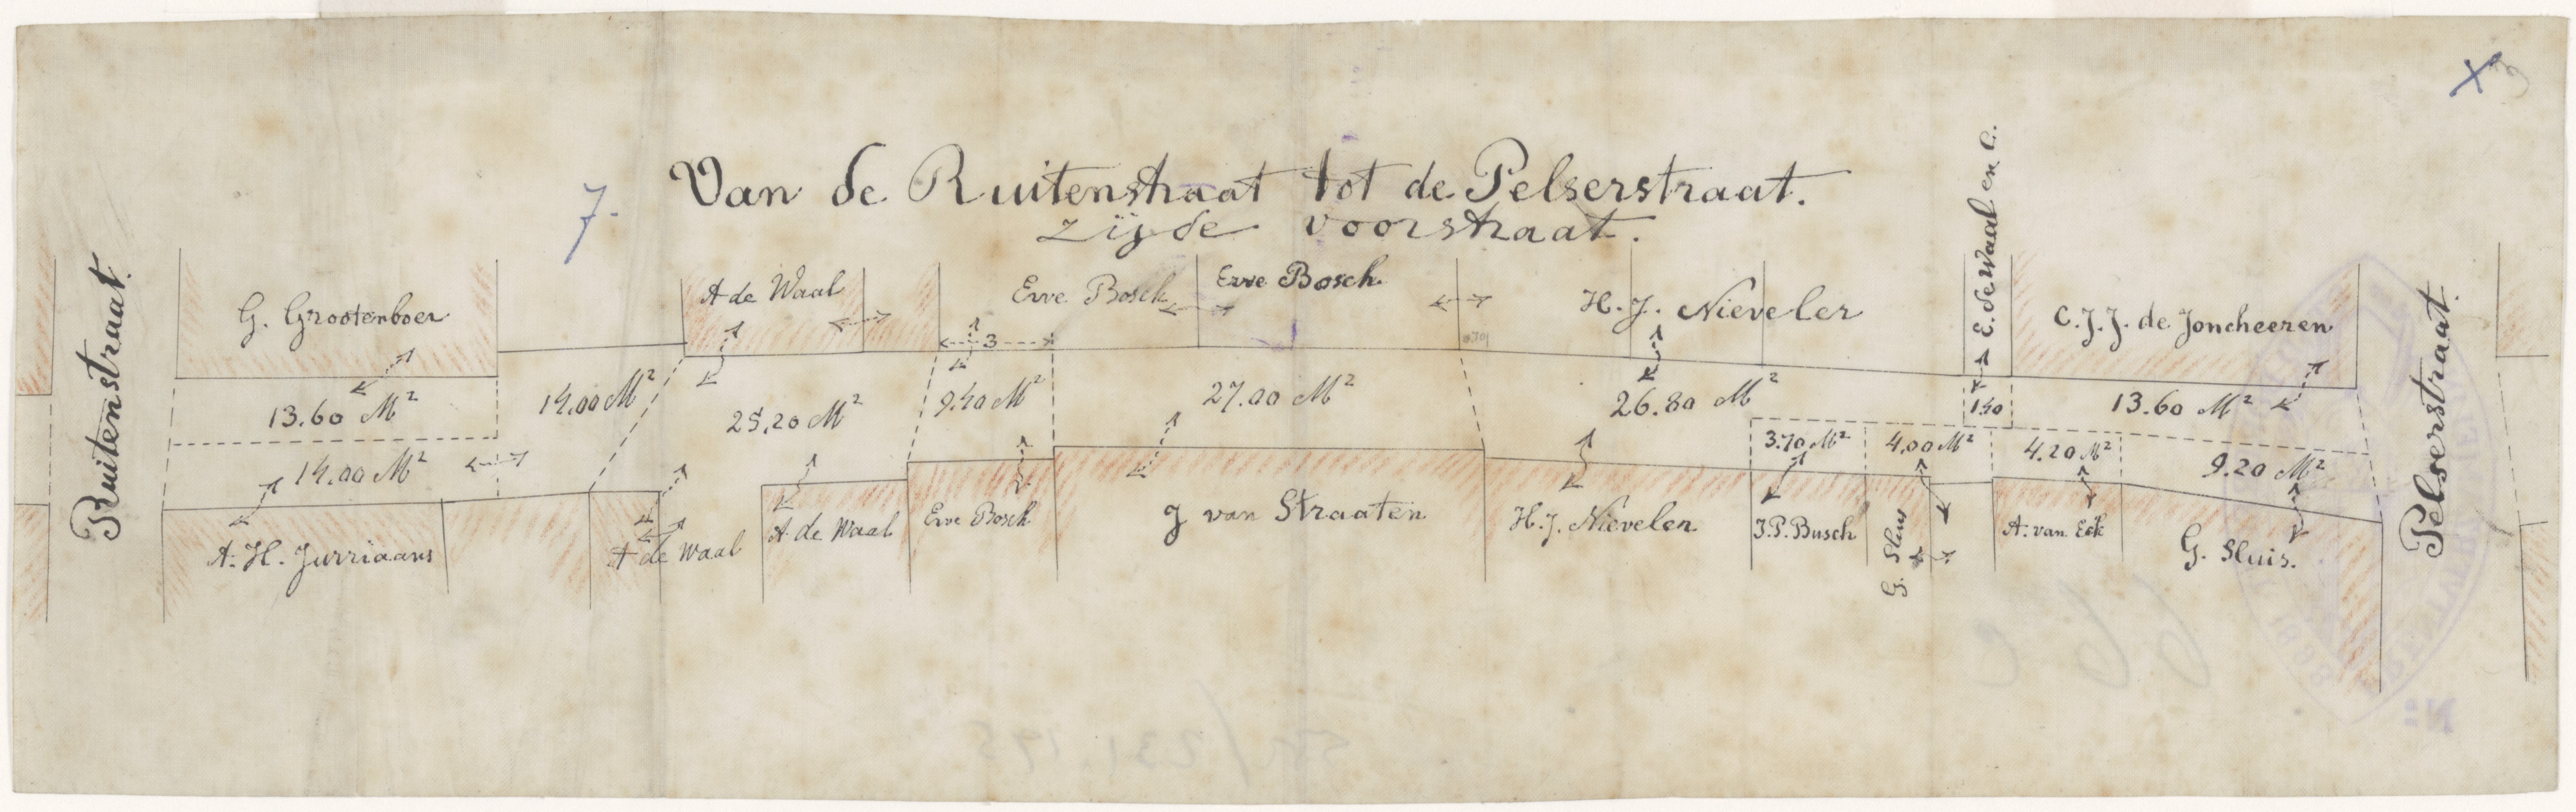 7.
Van de Ruitenstraat tot de Pelserstraat.
zijde voorstraat.
Ruitenstraat.
G. Grootenboer
A de Waal
Erve Bosch
Erve Bosch.
H. J. Nieveler
E. de Waal en C.
C. J. J. de Joncheeren
Pelserstraat.
3
13.60 M²
14.00 M²
25.20 M²
9.40 M²
27.00 M²
26.80 M²
1.40
13.60 M²
14.00 M²
3.70 M²
4.00 M²
4.20 M²
9.20 M²
A. H. Jurriaans
A de Waal
A de Waal
Erve Bosch
J van Straaten
H. J. Nieveler
J. P. Busch
G. Sluis
A. van Eck
G. Sluis.